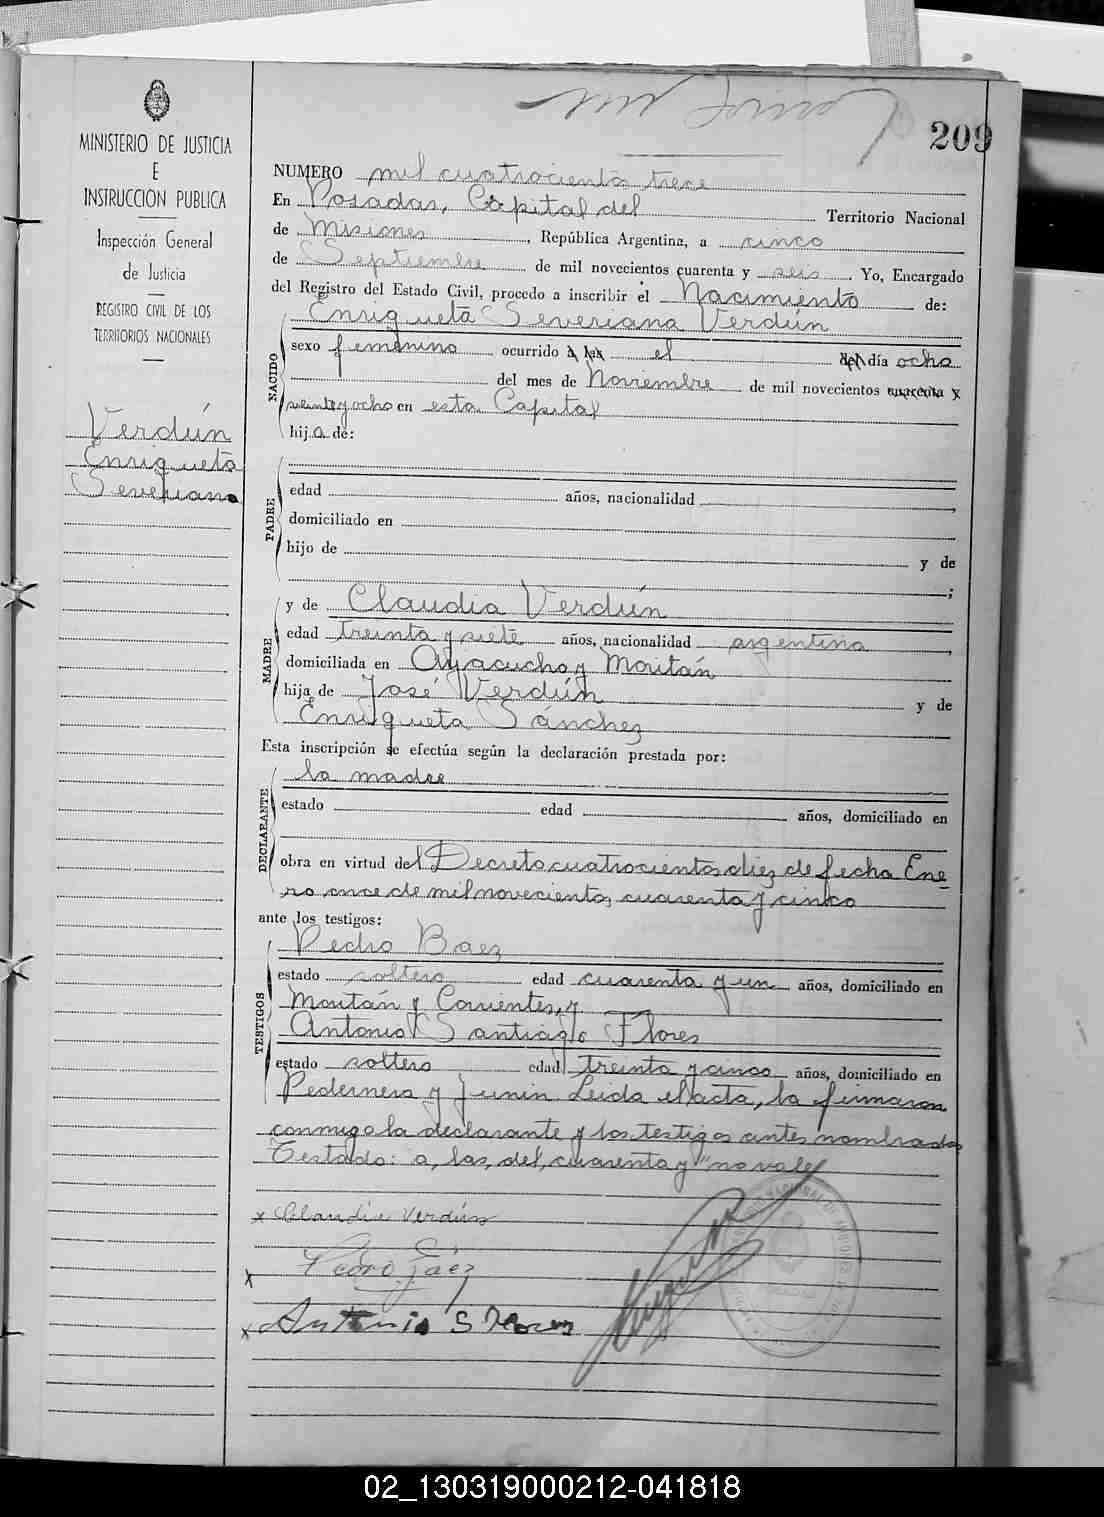 209
MINISTERIO DE JUSTICIA
E
INSTRUCCION PUBLICA
Inspección General
de Justicia
REGISTRO CIVIL DE LOS
TERRITORIOS NACIONALES
Verdún
Enriqueta
Severiana
NUMERO mil cuatrocientos trece
En Posadas, Capital del Territorio Nacional
de Misiones, República Argentina, a cinco
de Septiembre de mil novecientos cuarenta y seis. Yo, Encargado
del Registro del Estado Civil, procedo a inscribir el Nacimiento de:
Enriqueta Severiana Verdún
NACIDO
sexo femenino ocurrido a las el del día ocho
del mes de Noviembre de mil novecientos cuarenta y
veinte y ocho en esta Capital
hija de:
PADRE
edad años, nacionalidad
domiciliado en
hijo de y de
;
MADRE
y de Claudia Verdún
edad treinta y siete años, nacionalidad argentina
domiciliada en Ayacucho y Moritán
hija de José Verdún y de
Enriqueta Sánchez
Esta inscripción se efectúa según la declaración prestada por:
DECLARANTE
la madre
estado edad años, domiciliado en
obra en virtud del Decreto cuatrocientos diez de fecha Ene-
ro once de mil novecientos cuarenta y cinco
ante los testigos:
TESTIGOS
Pedro Baez
estado soltero edad cuarenta y un años, domiciliado en
Moritán y Corrientes, y
Antonio Santiago Flores
estado soltero edad treinta y cinco años, domiciliado en
Pedernera y Junin. Leida el acta, la firmaron
conmigo la declarante y los testigos antes nombrados
Testado: a, las, del, cuarenta y "no vale"
x Claudia Verdún
x Pedro Báez
x Antonio S Flores
02_130319000212-041818